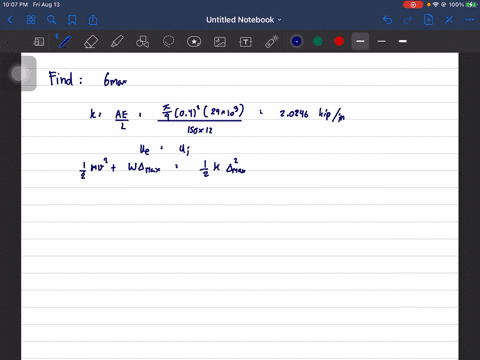 10:07 PM Fri Aug 13
Untitled Notebook
Find: σmax
k: AE/L : π/4 (0.4)² (29×10³) / 150×12 : 2.0246 kip/in
Ue : Ui
1/2 mv² + WΔmax : 1/2 k Δ²max